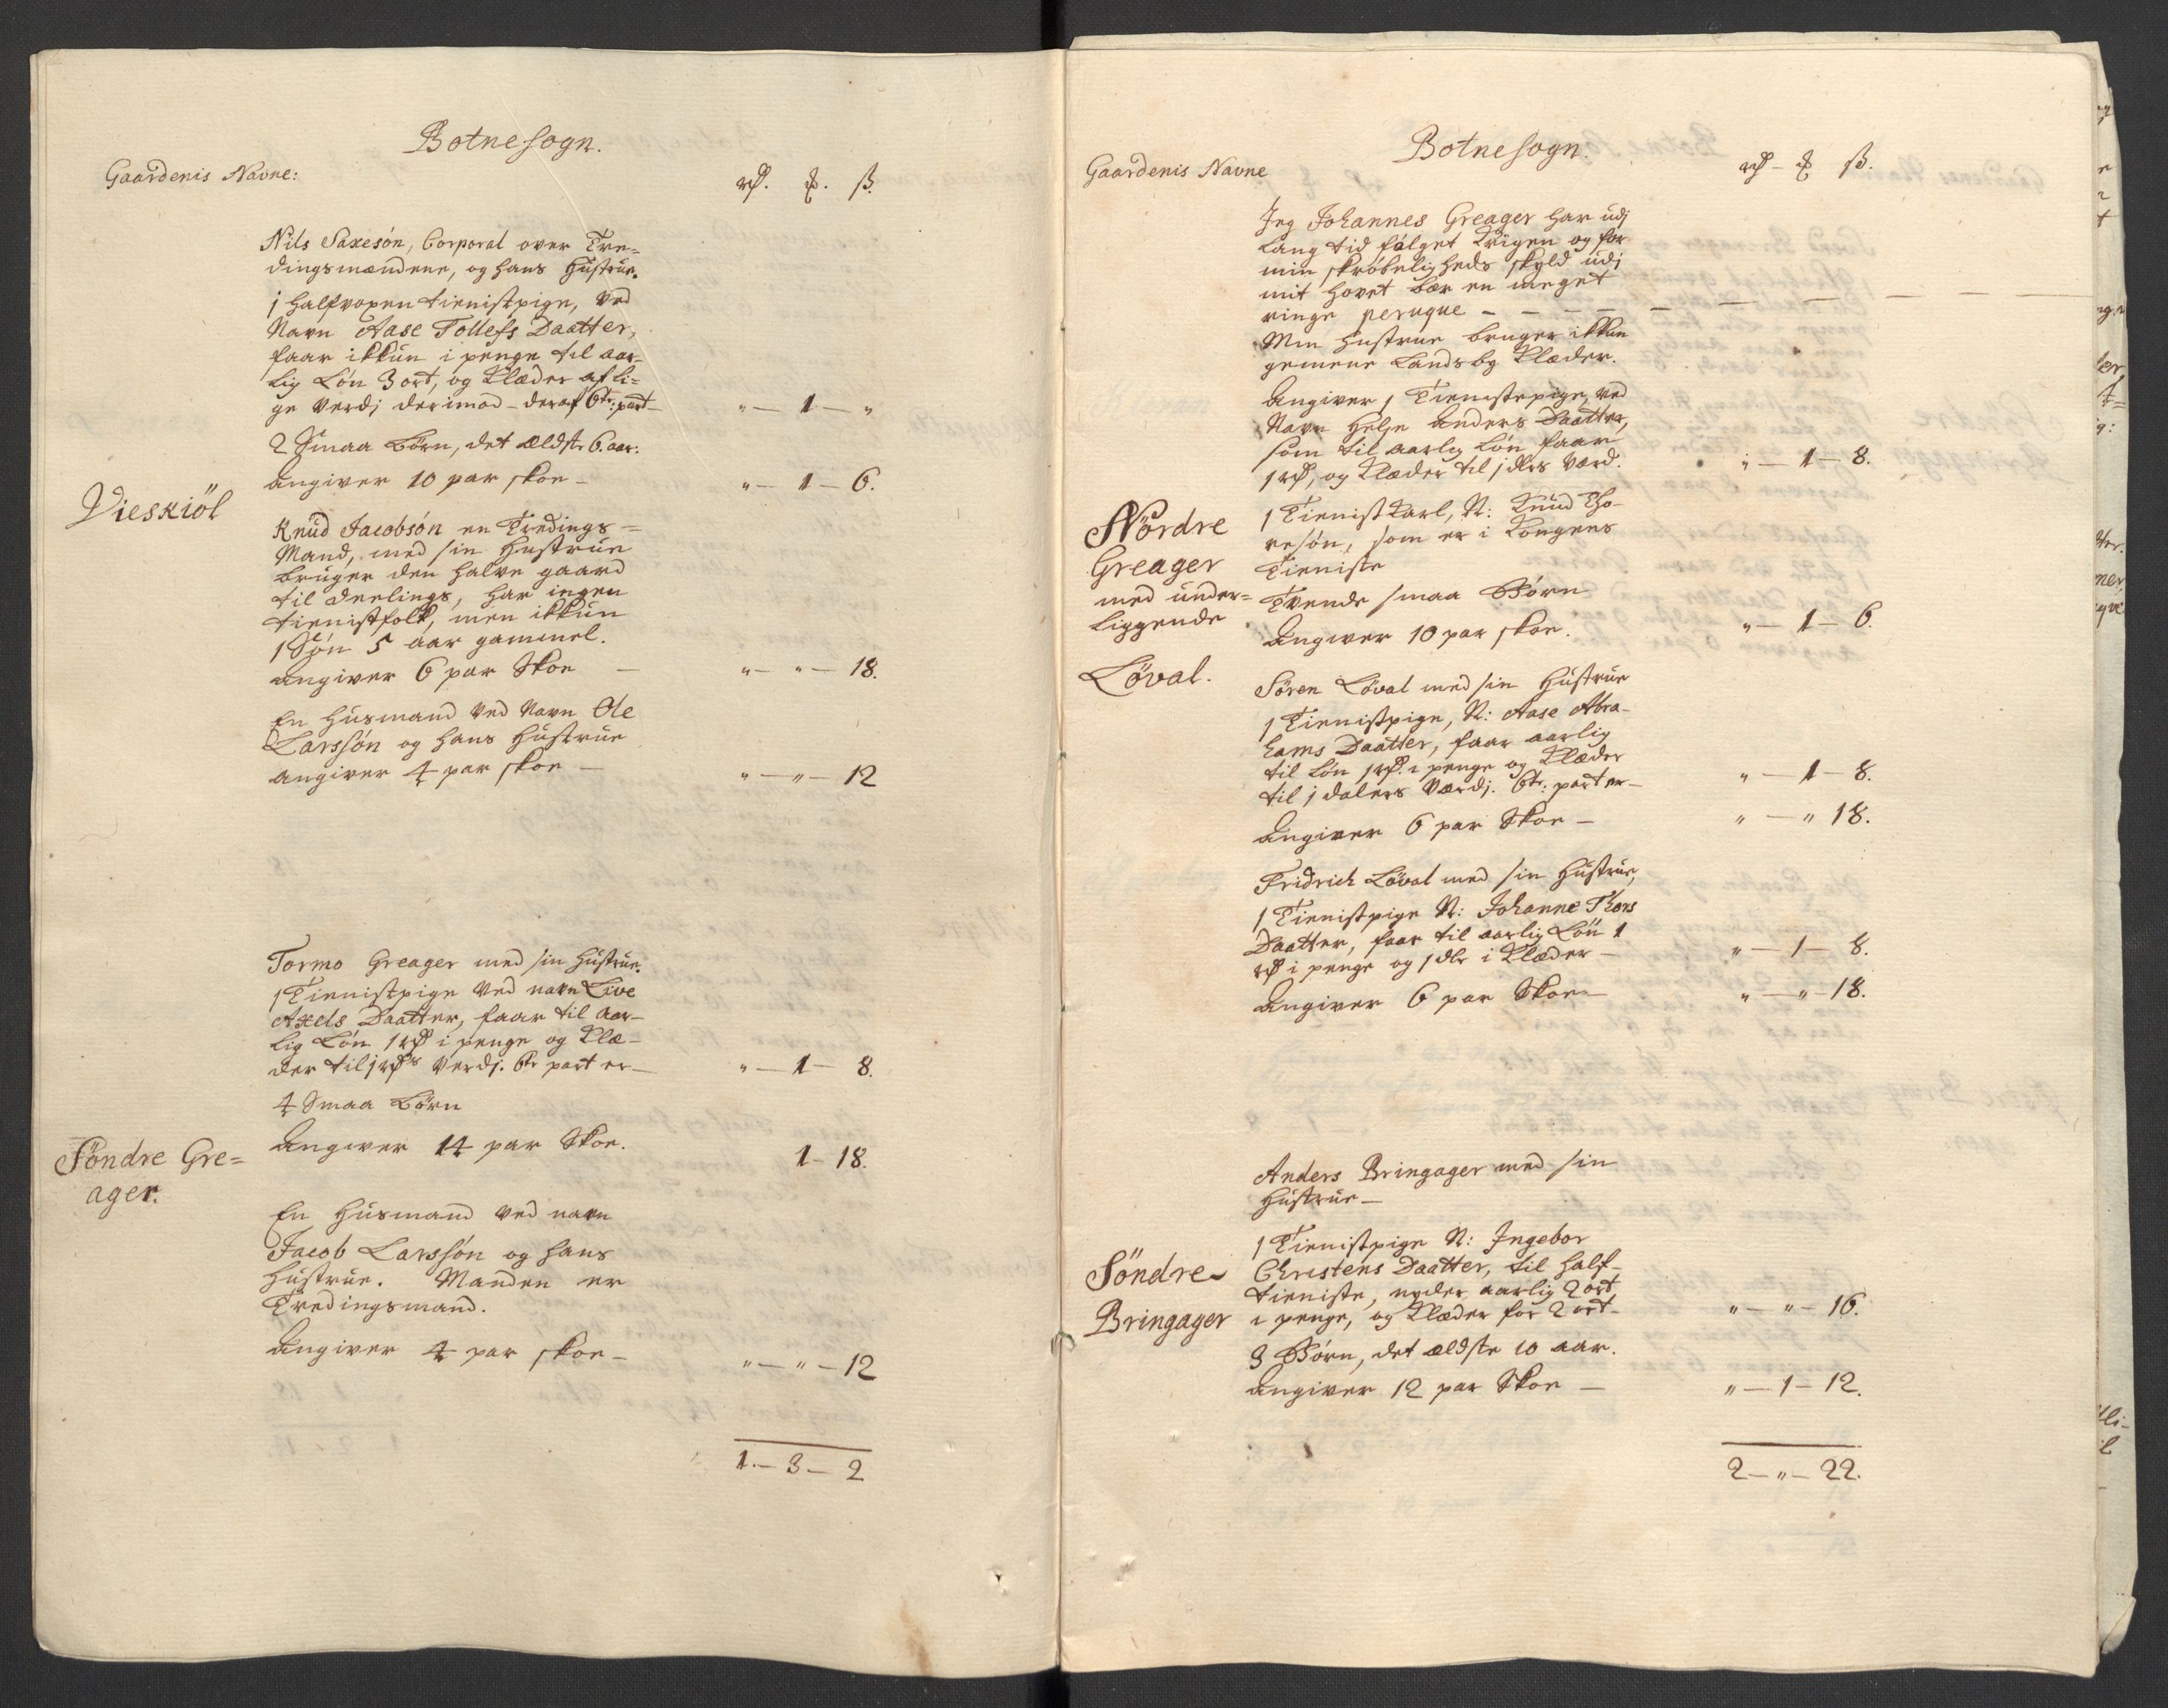 Botnesogn.
Gaardenis Navne:
rd. ₰. ß.
Nils Saxesón, Corporal over Tre=
dingsmændene, og hans Hustrue.
1 halfvoxen tienistpige, ved
Navn Aase Tollefs Daatter,
faar ikkun i penge til aar-
lig Lón 3 ort, og Klæder af li=
ge Verdj derimod - deraf 6te: part - " - 1 - "
2 Smaa Börn, det ældste 6. aar.
angiver 10 par skoe - " - 1 - 6.
Vieskiöl
Knud Jacobsón en Tredings=
Mand, med sin Hustrue
bruger den halve gaard
til deelings, har ingen
tienistfolk, men ikkun
1 Són 5 aar gammel.
angiver 6 par Skoe - " - " - 18.
En Huusmand ved Navn Ole
Larssón og hans Hustrue
angiver 4 par skoe - " - " - 12
Tormo Greager med sin Hustrue.
1 Tienistpige ved navn Live
Axels Daatter, faar til Aar-
lig Lón 1 rd i penge og Klæ-
der til 1 rds Verdj. 6te part er - " - 1 - 8.
4 Smaa Börn
Angiver 14 par Skoe. 1 - 18.
Söndre Gre=
ager.
En Husmand ved navn
Jacob Larssón og hans
Hustrue. Manden er
Tredingsmand.
Angiver 4 par skoe - " - " - 12
1. - 3 - 2
Botnesogn.
Gaardenis Navne
rd - ₰ ß.
Jeg Johannes Greager har udj
lang tid fólget Krigen og for
min skróbeligheds skyld udj
mit hovet bær en meget
ringe peruque - - - - -
Min Hustrue bruger ikkun
gemene Landsby Klæder.
Angiver 1 Tienistepige, ved
Navn Helje Anders Daatter,
som til aarlig Lón faar
1 rd, og Klæder til 1 dlrs Værd. " - 1 - 8.
Nördre
Greager
med under=
liggende
Löval.
1 Tienistkarl, N: Knud Tho-
resón, som er i Kongens
Tieniste
Tvende smaa Börn
Angiver 10 par skoe. " - 1 - 6.
Sören Löval med sin Hustrue
1 Tienistpige, N: Aase Abra-
hams Daatter, faar aarlig
til Lón 1 rd. i penge og Klæder
til 1 dalers Værdj. 6te: part er - " - 1 - 8.
Angiver 6 par Skoe - " - " 18.
Fridrich Löval med sin Hustrue,
1 Tienistpige N: Johanne Thors
Daatter, faar til aarlig Lón 1
rd i penge og 1 dlr i Klæder - " - 1 - 8.
Angiver 6 par Skoe - " - " - 18.
Anders Bringager med sin
Hustrue -
1 Tienistpige N: Ingebor
Christens Daatter, til half-
tieniste, nyder aarlig 2 ort
i penge, og Klæder for 2 ort - " - " - 16.
Söndre
Bringager
3 Börn, det ældste 10 aar.
angiver 12 par Skoe - " - 1 - 12.
2 - " - 22.